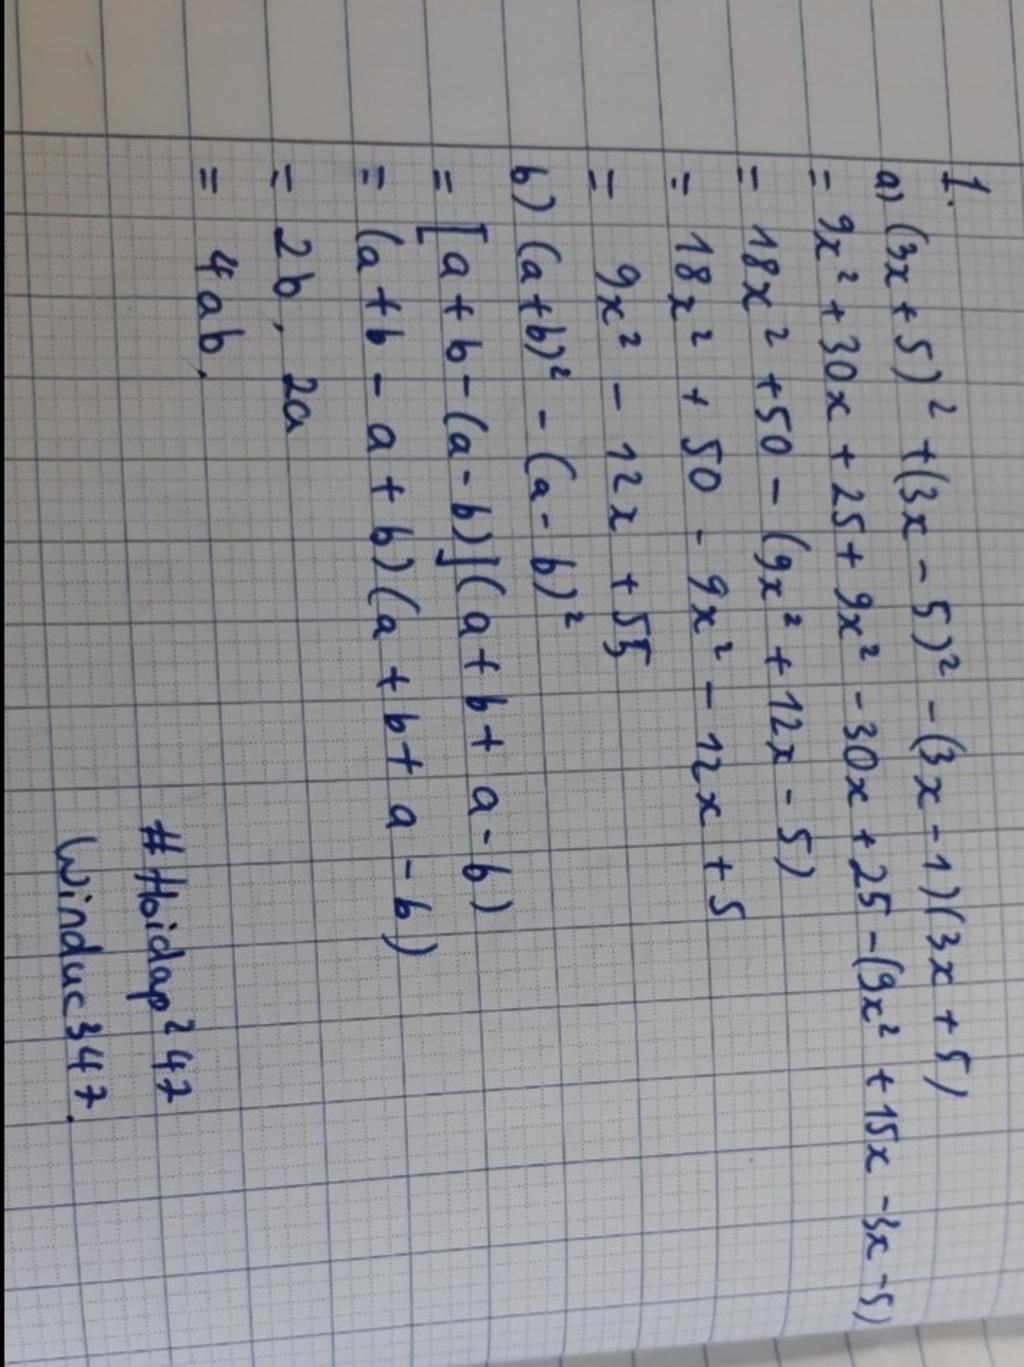 1.
a) (3x + 5)² + (3x - 5)² - (3x - 1)(3x + 5)
= 9x² + 30x + 25 + 9x² - 30x + 25 - (9x² + 15x - 3x - 5)
= 18x² + 50 - (9x² + 12x - 5)
= 18x² + 50 - 9x² - 12x + 5
= 9x² - 12x + 55
b) (a + b)² - (a - b)²
= [a + b - (a - b)](a + b + a - b)
= (a + b - a + b)(a + b + a - b)
= 2b . 2a
= 4ab.
#Hoidap247
Winduc347.